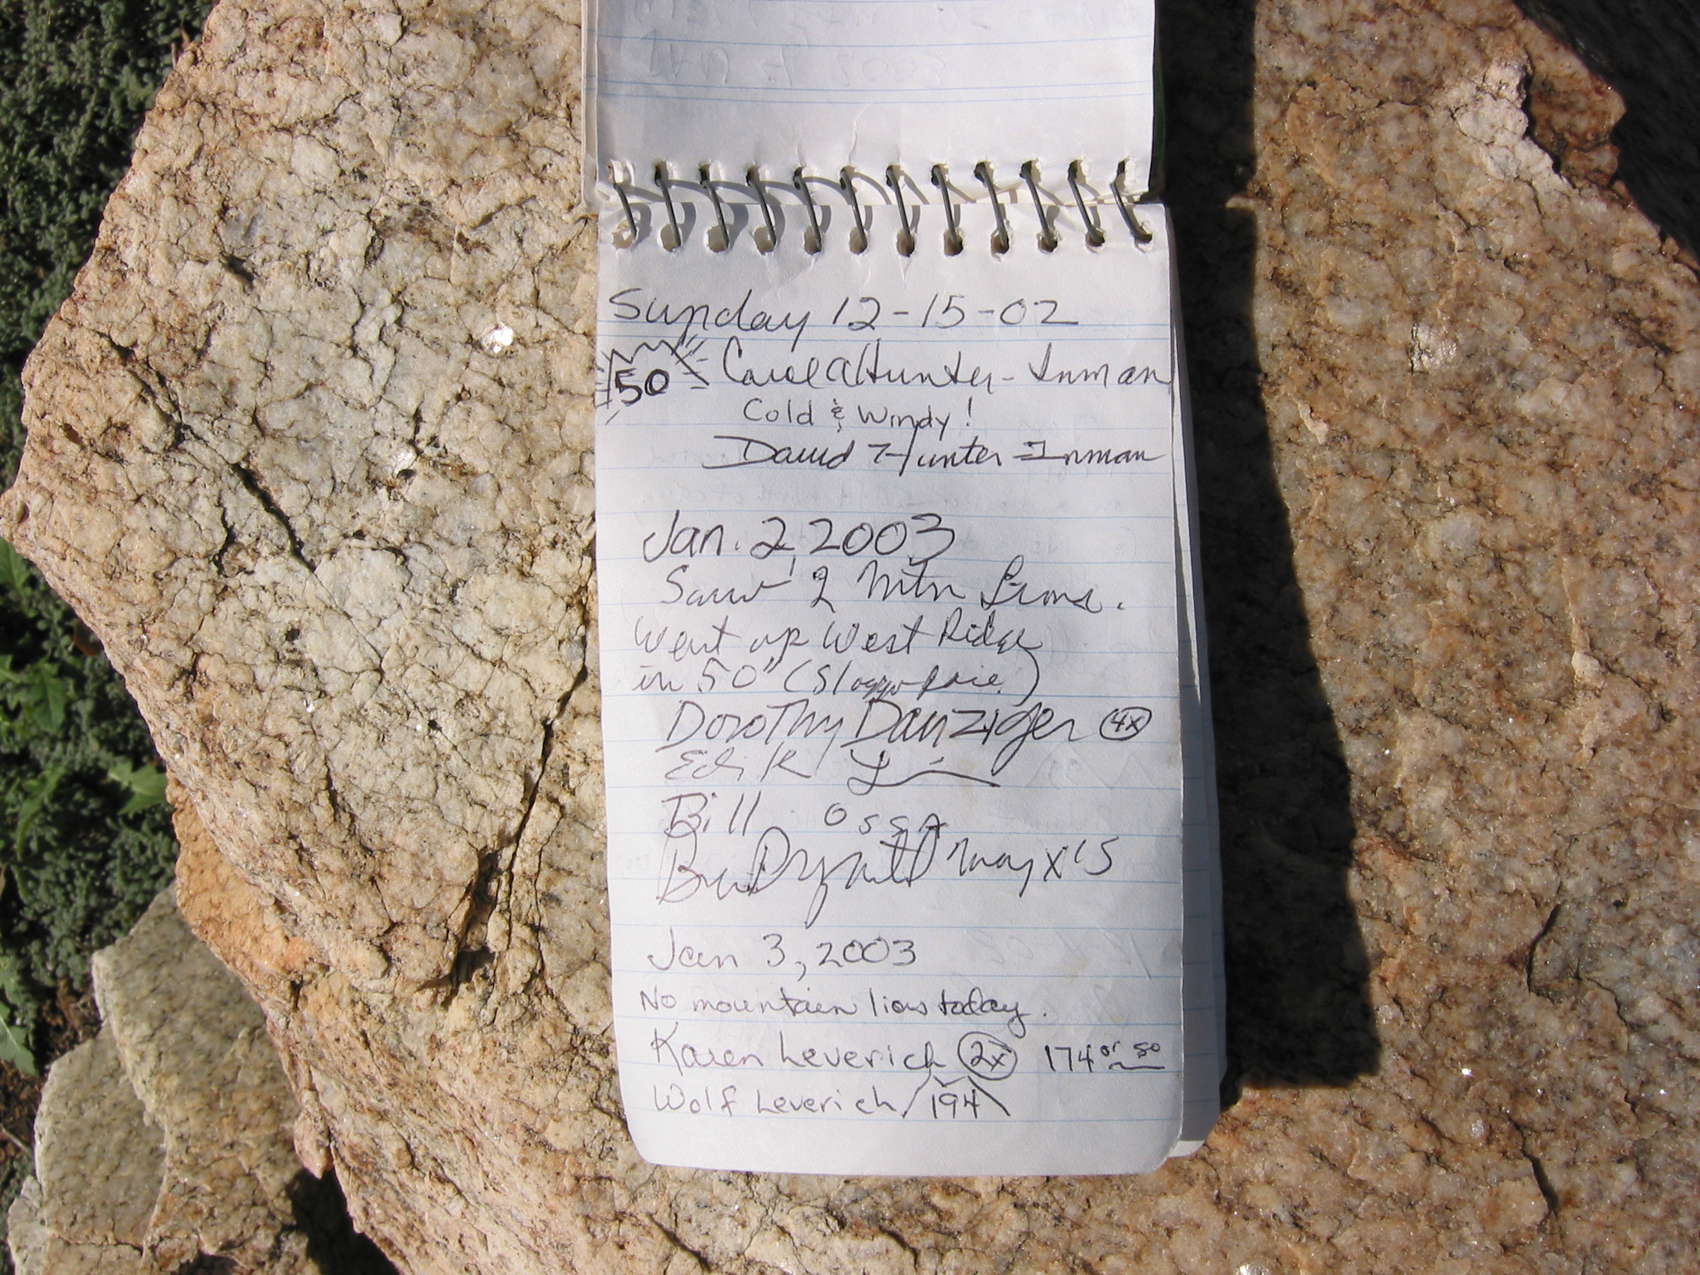 Sunday 12-15-02
50 Carol Hunter-Inman
Cold & Windy!
David Hunter-Inman
Jan. 2, 2003
Saw 2 Mtn Lions.
Went up West Ridge
in 50"
Dorothy Danziger 4x
Bill Ossa
Jan 3, 2003
No mountain lions today.
Karen Leverich 2x 174 or so
Wolf Leverich 194